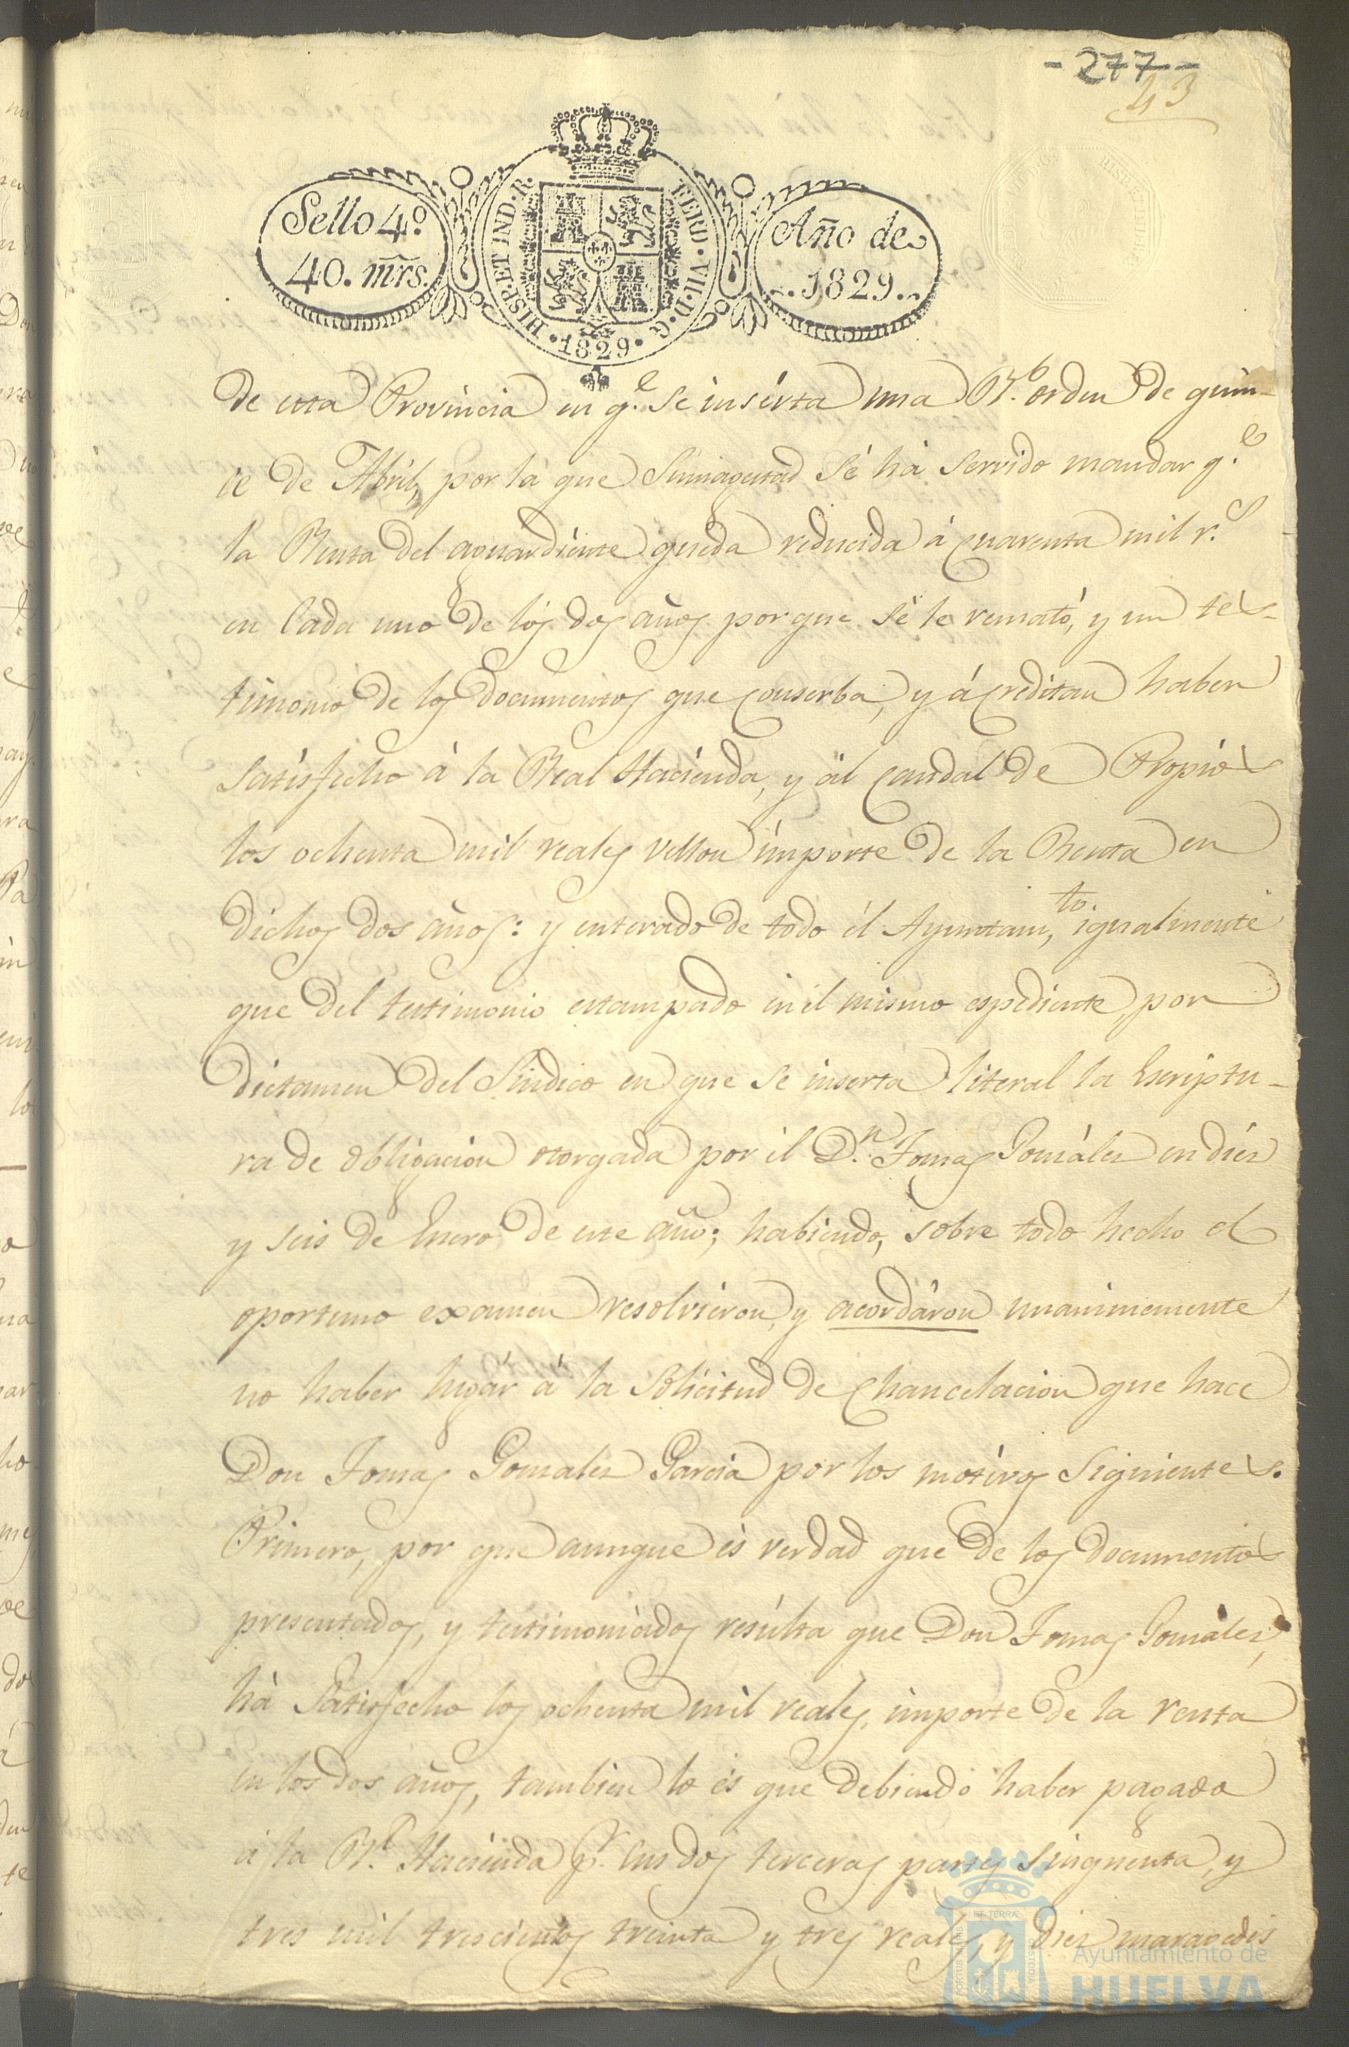 -277-
43
Sello 4º
40. mrs.
HISP. ET IND. R.
FERD. VII. D. G.
1829
Año de
1829
de esta Provincia en q.e se inserta una R.l orden de quin-
ce de Abril, por la que Sumagestad sé há servido mandar q.e
la Renta del aguardiente queda reducida á Cuarenta mil r.s
en Cada uno de los dos años porque sé le remató, y un tes-
timonio de los documentos que Conserba, y ácreditan haber
Satisfecho á la Real Hacienda, y al Caudal de Propios
los ochenta mil reales vellon importe de la Renta en
dichos dos años: y enterado de todo él Ayuntam.to, igualmente
que del testimonio estampado en él mismo espediente, por
dictamen del Sindico en que se inserta literal la Escriptu-
ra de obligacion otorgada por él D.n Tomas Gonzáles en diez
y seis de Enero de este año; habiendo, sobre todo hecho el
oportuno examen resolvieron, y acordáron unanimemente
no haber lugár á la Solicitud de Chancelacion que hace
Don Tomas Gonzales Garcia por los motivos Siguientes.
Primero, por que aunque és verdad que de los documentos
presentados, y testimoniádos resúlta que Don Tomas Gonzáles,
há Satisfecho los ochenta mil reales, importe de la renta
en los dos años, tambien lo és que debiendo haber pagado
á la R.l Hacienda p.r Sus dos terceras partes Sinquenta, y
tres mil trescientos treinta y tres reales, y diez maravedis
Ayuntamiento de
HUELVA